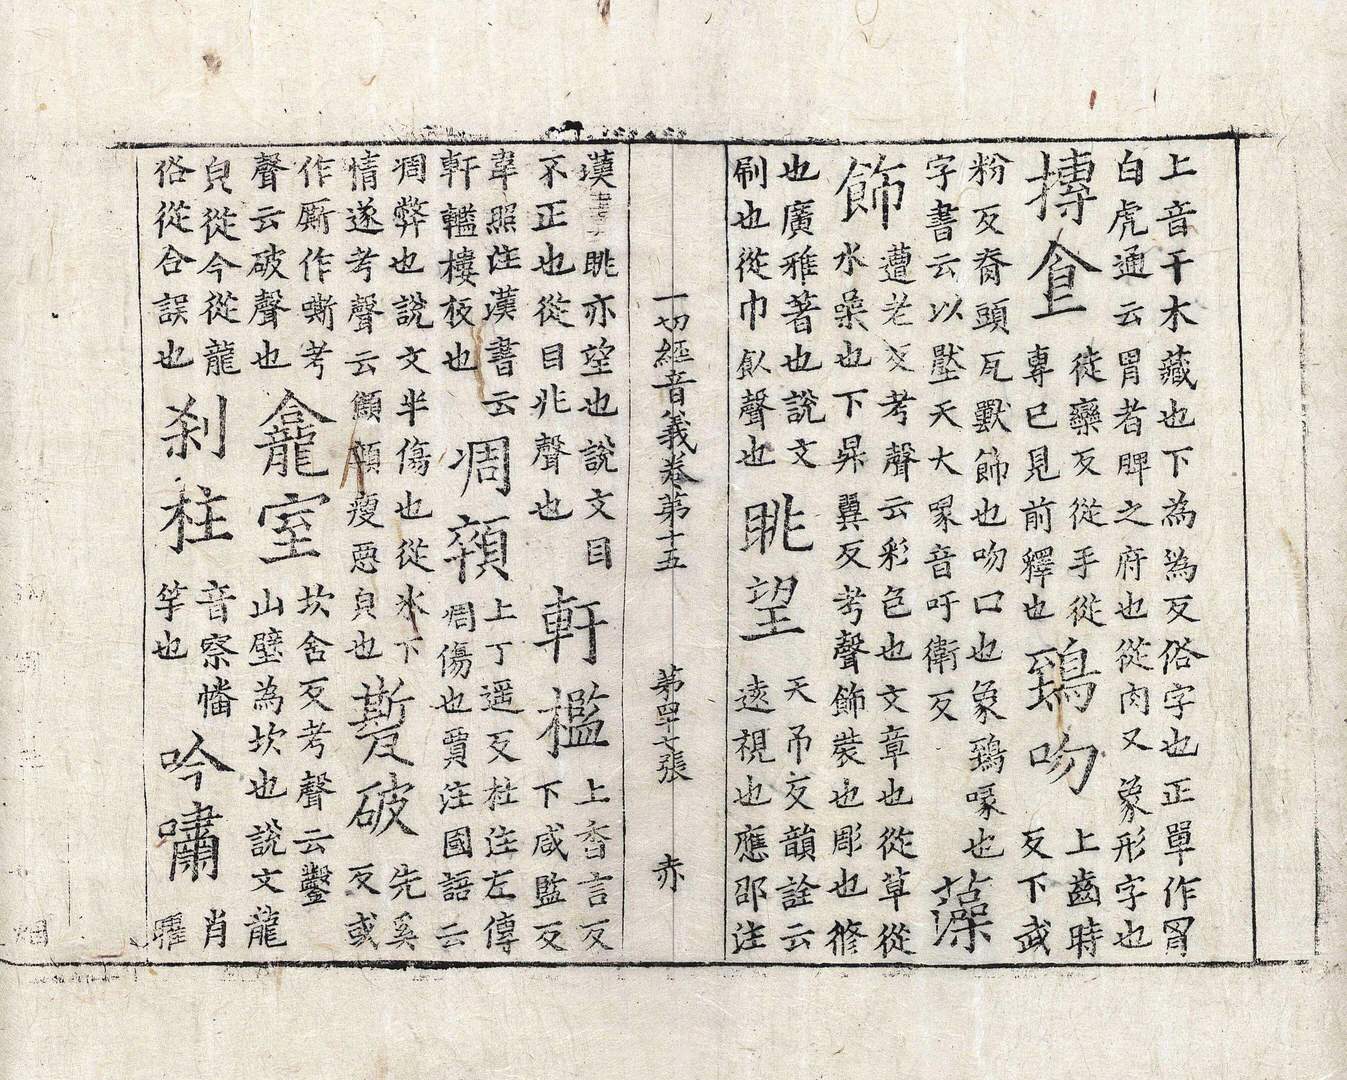 上音干木藏也下為為反俗字也正單作胃
白虎通云胃者脾之府也從肉又象形字也
摶食
徒欒反從手從
專已見前釋也
鵄吻
上齒時
反下武
粉反脊頭瓦獸飾也吻口也象鵄喙也
字書云以壓天大喙音吁衛反
藻
飾
遭老反考聲云彩色也文章也從草從
水喿也下昇翼反考聲飾裝也彫也修
也廣雅著也說文
刷也從巾飤聲也
眺望
天吊反韻詮云
遠視也應邵注
一切經音義卷第十五 第四十七張 赤
漢書云眺亦望也說文目
不正也從目兆聲也
軒檻
上香言反
下咸監反
韋照注漢書云
軒轞樓板也
凋顇
上丁遥反杜注左傳
凋傷也賈注國語云
凋弊也說文半傷也從冰下
情遂考聲云顦顇瘦惡皃也
破
先奚
反或
作廝作嘶考
聲云破聲也
龕室
坎含反考聲云鑿
山壁為坎也說文龍
皃從今從龍
俗從合誤也
剎柱
音察幡
竿也
吟嘯
肖